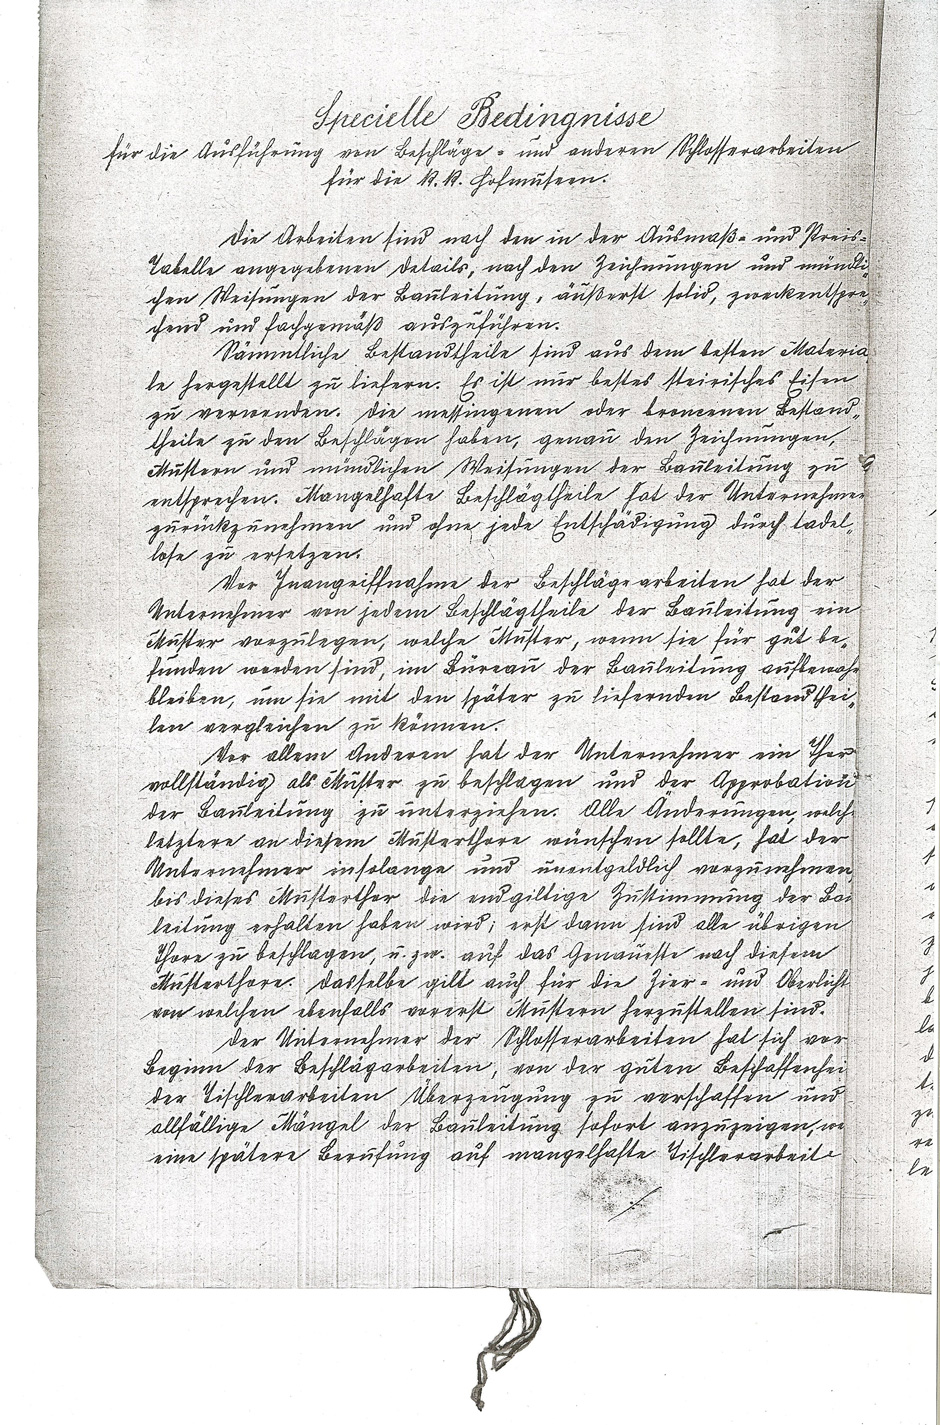 Specielle Bedingnisse
für die Ausführung von Beschläge- und anderen Schlosserarbeiten
für die k. k. Hofmuseen.
Die Arbeiten sind nach den in der Ausmaß- und Preis-
Tabelle angegebenen Details, nach den Zeichnungen und mündli-
chen Weisungen der Bauleitung, äußerst solid, zweckentspre-
chend und fachgemäß auszuführen.
Sämmtliche Bestandtheile sind aus dem besten Materia
le hergestellt zu liefern. Es ist nur bestes steirisches Eisen
zu verwenden. Die messingenen oder broncenen Bestand-
theile zu den Beschlägen haben, genau den Zeichnungen,
Mustern und mündlichen Weisungen der Bauleitung zu
entsprechen. Mangelhafte Beschlägtheile hat der Unternehmer
zurückzunehmen und ohne jede Entschädigung durch tadel-
lose zu ersetzen.
Vor Inangriffnahme der Beschlägearbeiten hat der
Unternehmer von jedem Beschlägtheile der Bauleitung ein
Muster vorzulegen, welche Muster, wenn sie für gut be-
funden worden sind, im Bureau der Bauleitung aufbewahr
bleiben, um sie mit den später zu liefernden Bestandthei-
len vergleichen zu können.
Vor allem Anderen hat der Unternehmer ein Thor
vollständig als Muster zu beschlagen und der Approbation
der Bauleitung zu unterziehen. Alle Änderungen, welche
letztere an diesem Musterthore wünschen sollte, hat der
Unternehmer insolange und unentgeldlich vorzunehmen
bis dieses Musterthor die endgiltige Zustimmung der Bau
leitung erhalten haben wird; erst dann sind alle übrigen
Thore zu beschlagen, u. zw. auf das Genaueste nach diesem
Musterthore. Dasselbe gilt auch für die Zier- und Oberlicht
von welchen ebenfalls vorerst Mustern herzustellen sind.
Der Unternehmer der Schlosserarbeiten hat sich vor
Beginn der Beschlägarbeiten, von der guten Beschaffenhei
der Tischlerarbeiten Überzeugung zu verschaffen und
allfällige Mängel der Bauleitung sofort anzuzeigen, we
eine spätere Berufung auf mangelhafte Tischlerarbeite
./.